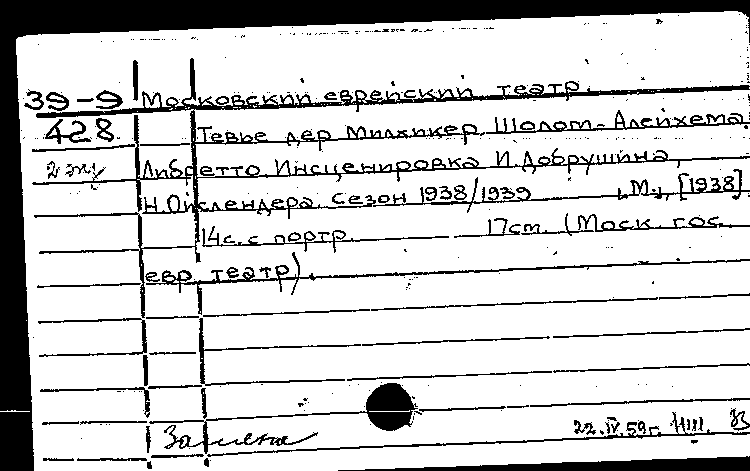 39-9 Московский еврейский театр.
428 Тевье дер Милхикер Шолом-Алейхема.
2 экз Либретто. Инсценировка И.Добрушина,
Н.Ойслендера. Сезон 1938/1939 М., [1938]
14с. с портр. 17см. (Моск. гос.
евр. театр).
Замена 22.IV.59г.